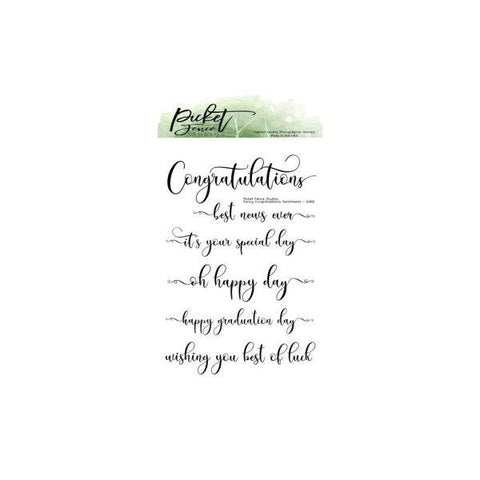 Picket
Fence
STUDIOS
Highest Quality Photopolymer Stamps
Made in the USA
Congratulations
Picket Fence Studios
Fancy Congratulations Sentiments -
best news ever
it's your special day
oh happy day
happy graduation day
wishing you best of luck